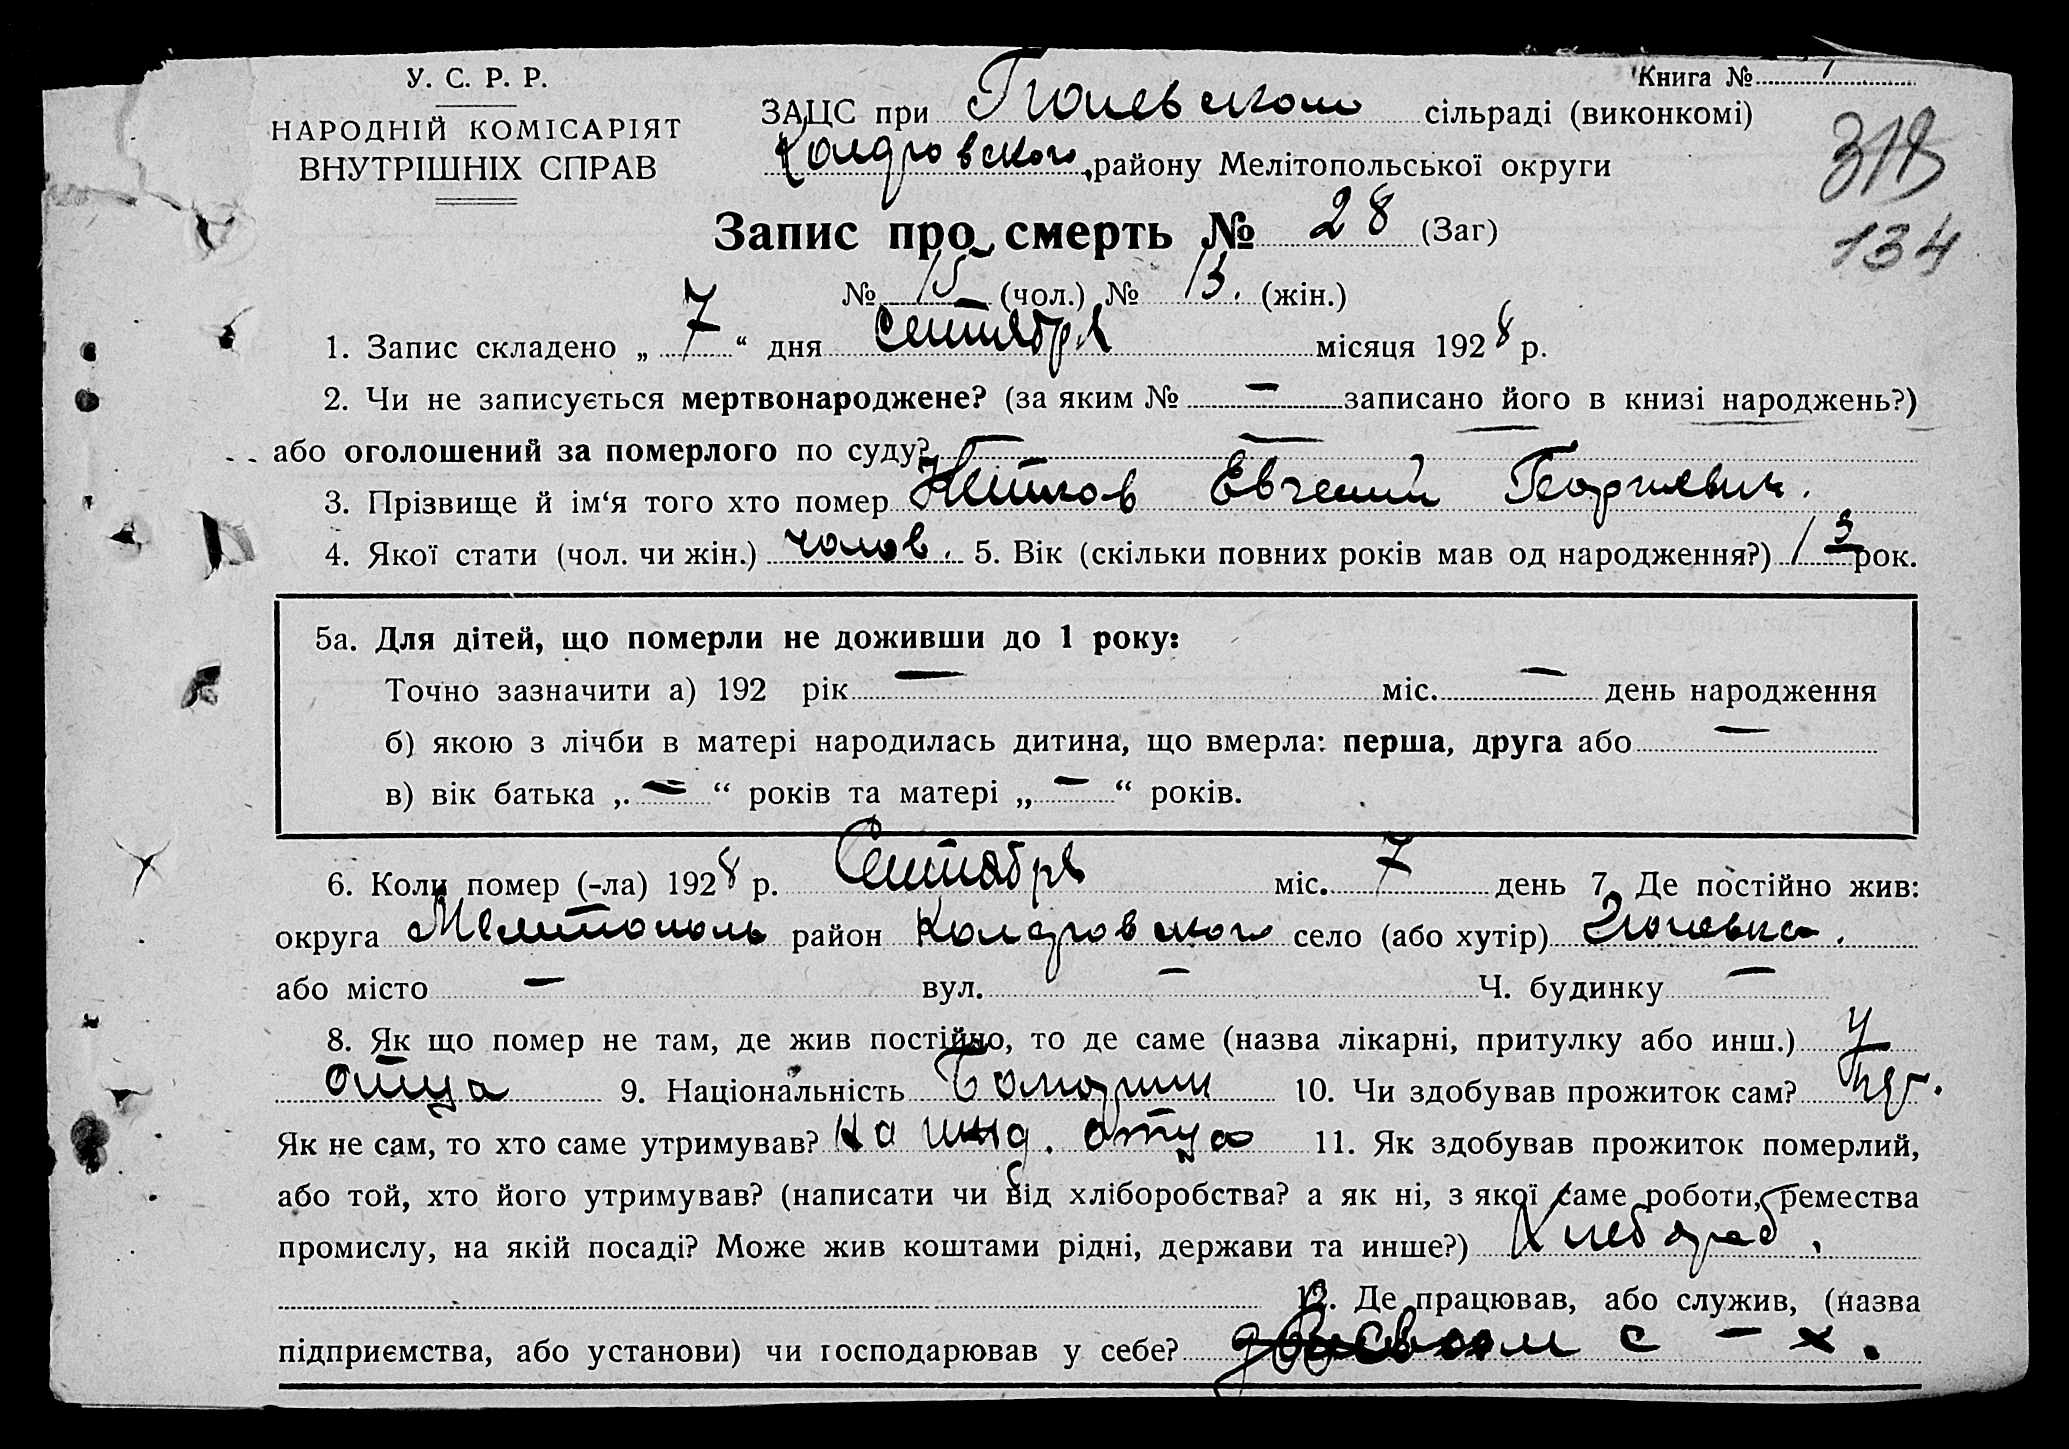 У. С. Р. Р.
НАРОДНІЙ КОМІСАРІЯТ
ВНУТРІШНІХ СПРАВ
Книга №
ЗАЦС при сільраді (виконкомі)
району Мелітопольської округи
318
134
Запис про смерть № 28 (Заг)
№ 15 (чол.) № 13. (жін.)
1. Запис складено „ 7 “ дня Сентября місяця 1928 р.
2. Чи не записується мертвонароджене? (за яким № — записано його в книзі народжень?)
або оголошений за померлого по суду? —
3. Прізвище й ім‘я того хто помер Евгений Георгиевич.
4. Якої стати (чол. чи жін.) чолов. 5. Вік (скільки повних років мав од народження?) рок.
5а. Для дітей, що померли не доживши до 1 року:
Точно зазначити а) 192 рік — міс. — день народження
б) якою з лічби в матері народилась дитина, що вмерла: перша, друга або —
в) вік батька „ — “ років та матері „ — “ років.
6. Коли помер (-ла) 1928 р. Сентября міс. 7 день 7. Де постійно жив:
округа Мелитополь район село (або хутір)
або місто — вул. — Ч. будинку —
8. Як що помер не там, де жив постійно, то де саме (назва лікарні, притулку або инш.) У
отца 9. Національність Болгарин 10. Чи здобував прожиток сам?
Як не сам, то хто саме утримував? на ижд. отца 11. Як здобував прожиток померлий,
або той, хто його утримував? (написати чи від хліборобства? а як ні, з якої саме роботи, ремества
промислу, на якій посаді? Може жив коштами рідні, держави та инше?) Хлебороб.
12. Де працював, або служив, (назва
підприємства, або установи) чи господарював у себе? своем с – х.